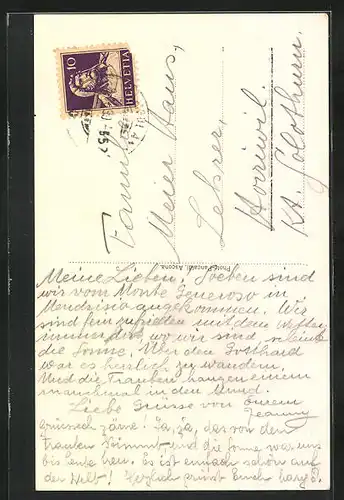 10
HELVETIA
Familie
Meier Hans,
Lehrer,
Horriwil.
Kt. Solothurn.
Photo Pancaldi, Ascona
Meine Lieben! Soeben sind
wir vom Monte Generoso in
Mendrisio angekommen. Wir
sind fein zufrieden mit dem Wetter
immer dort wo wir sind scheint
die Sonne. Über den Gotthard
war es herrlich zu wandern.
Und die Trauben hangen einem
manchmal in den Mund.
Liebe Grüsse von
Jeanny
Ja, ja, das von den
Trauben stimmt, und die Sonne war uns
bis heute hold. Es ist einfach schön auf
der Welt! Herzlich grüsst Euch